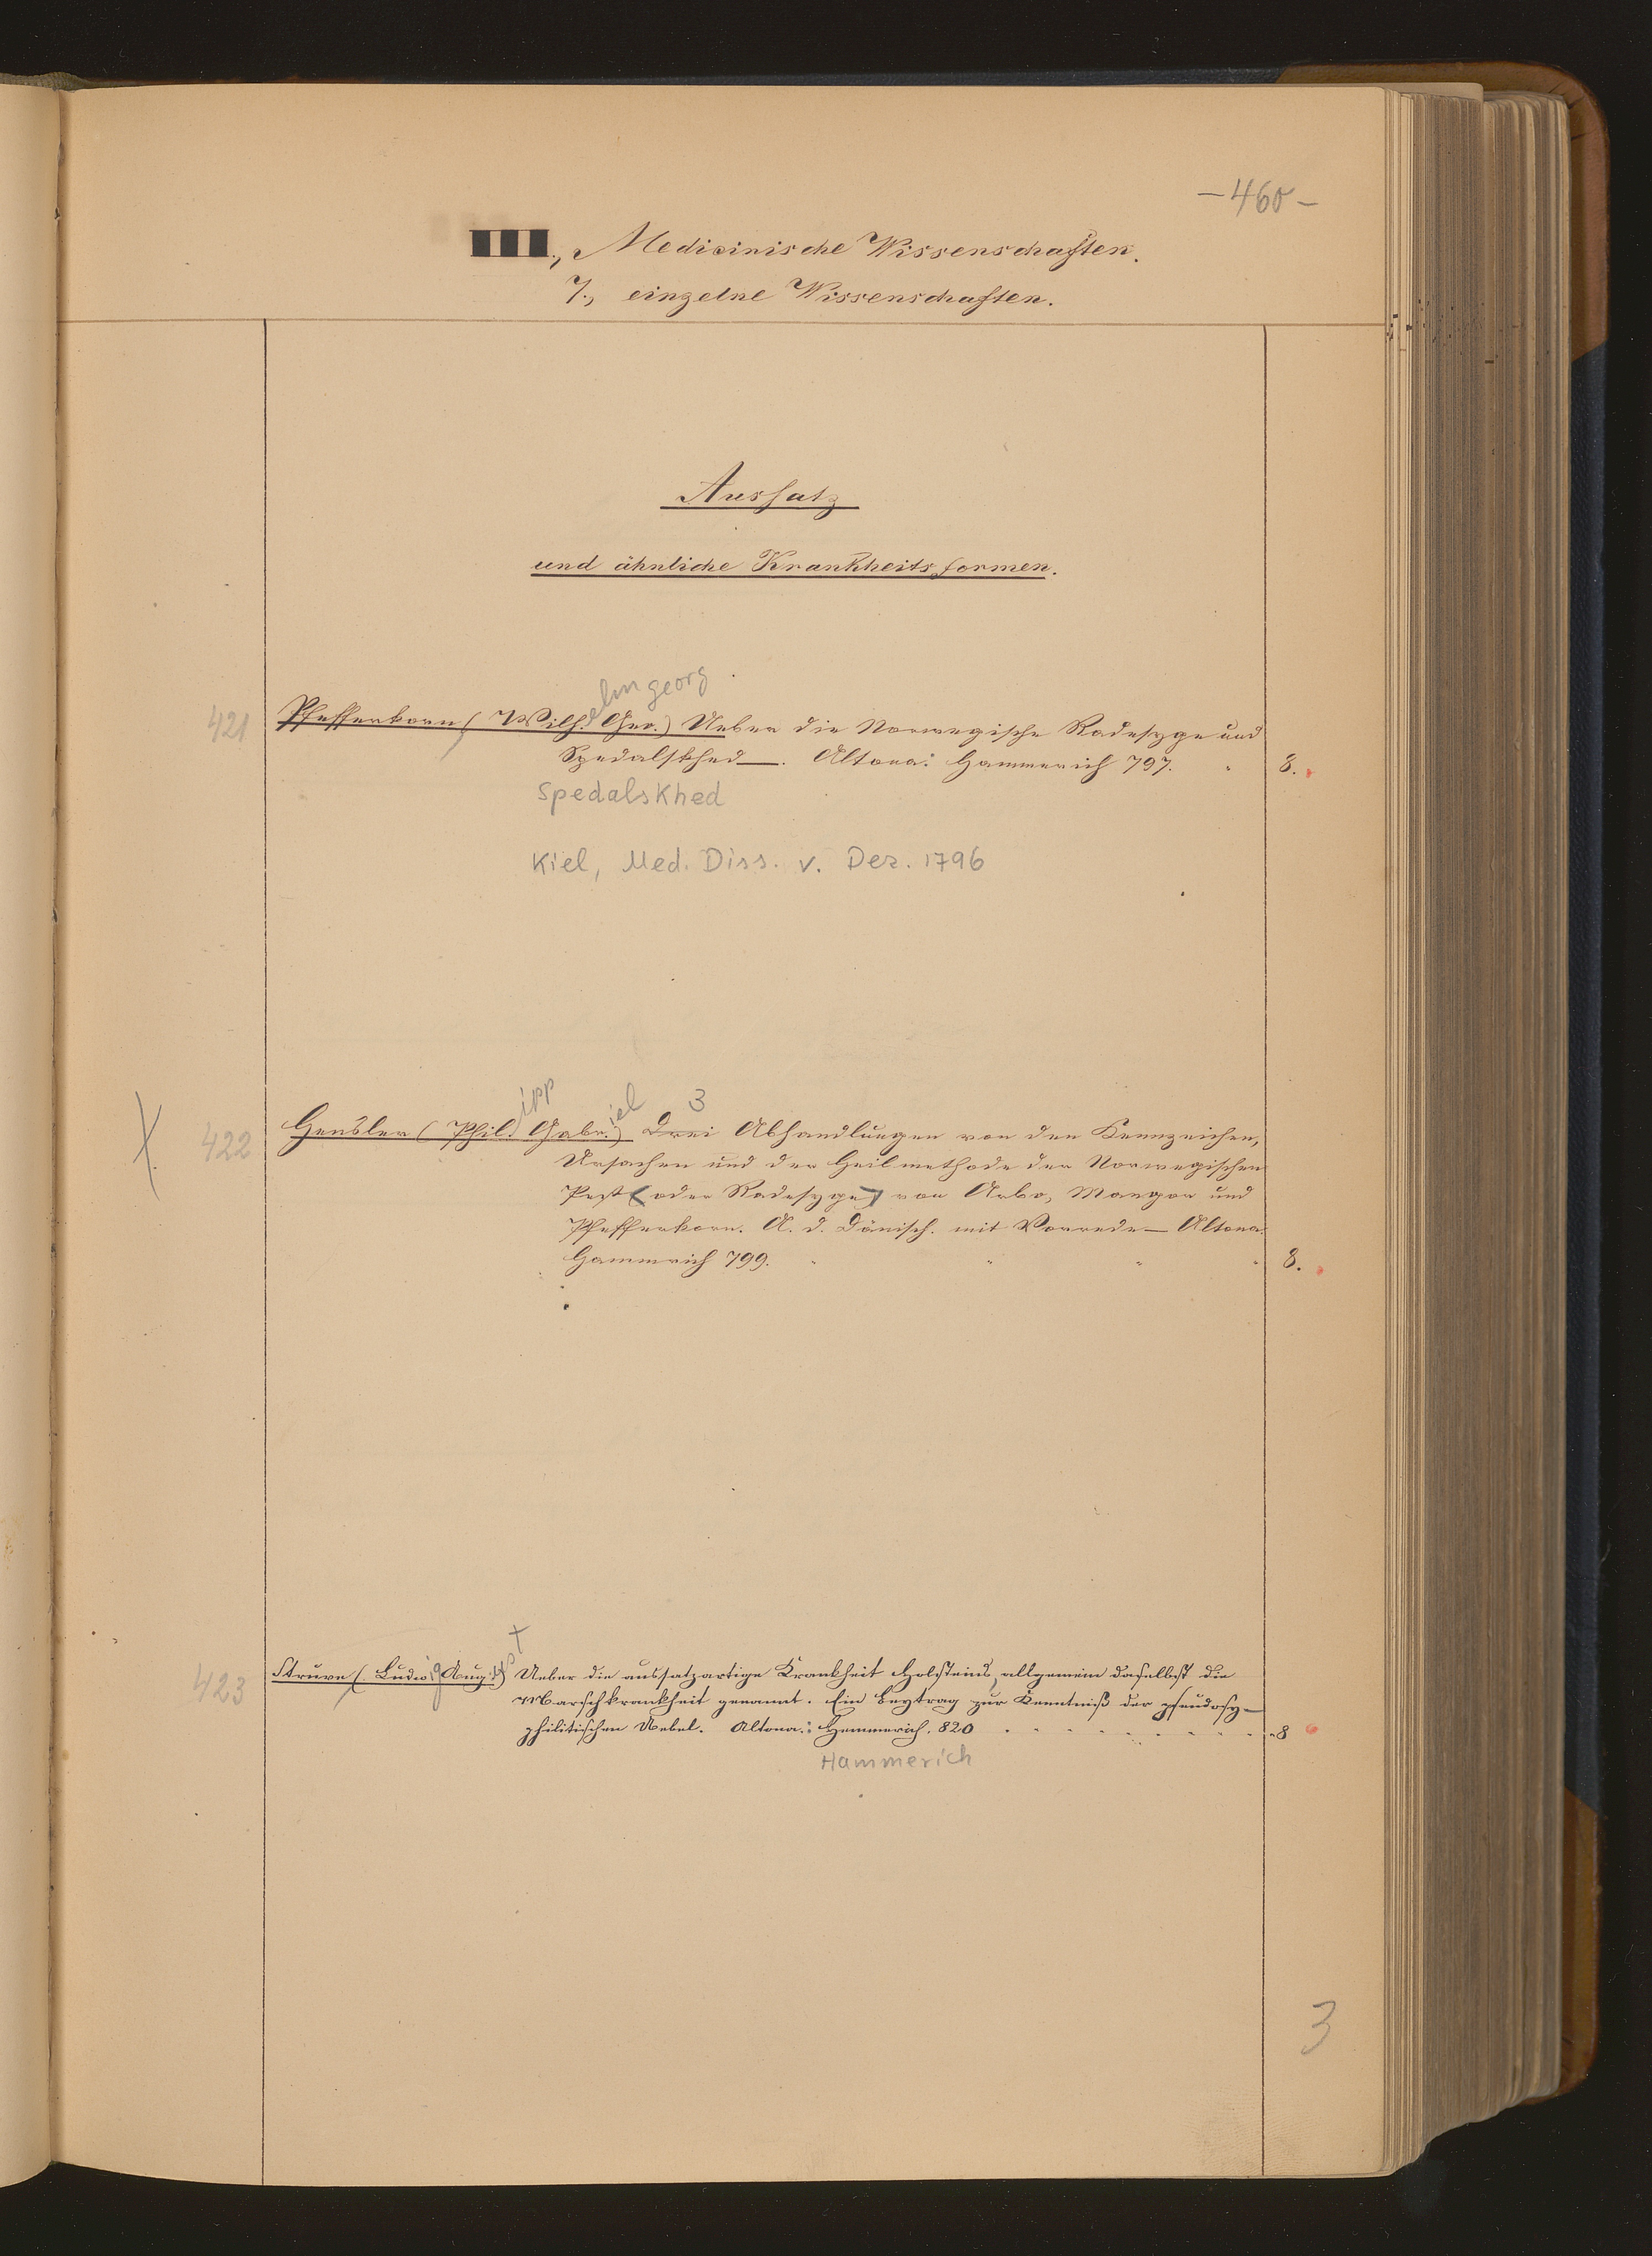 – 460 –
III., Medicinische Wissenschaften.
7., einzelne Wissenschaften.
Aussatz
und ähnliche Krankheitsformen.
elm georg
421 Pfefferkorn (Wilh. Geo.) Ueber die Norwegische Radesyge und
Spedalskhed —. Altona: Hammerich 797. 8.
Spedalskhed
Kiel, Med. Diss. v. Dez. 1796
ipp iel 3
422 Hensler (Phil. Gabr.) Drei Abhandlungen von den Kennzeichen,
Ursachen und der Heilmethode der Norwegischen
Pest (oder Radesyge) von Arbo, Mangor und
Pfefferkorn. A. d. Dänisch. mit Vorrede — Altona:
Hammrich 799. 8.
423 Struve (Ludwig August) Ueber die aussatzartige Krankheit Holsteins, allgemein daselbst die
Marschkrankheit genannt. Ein Beytrag zur Kenntniß der pseudosy-
philitischen Uebel. Altona: Hemmerich. 820 8
Hammerich
3